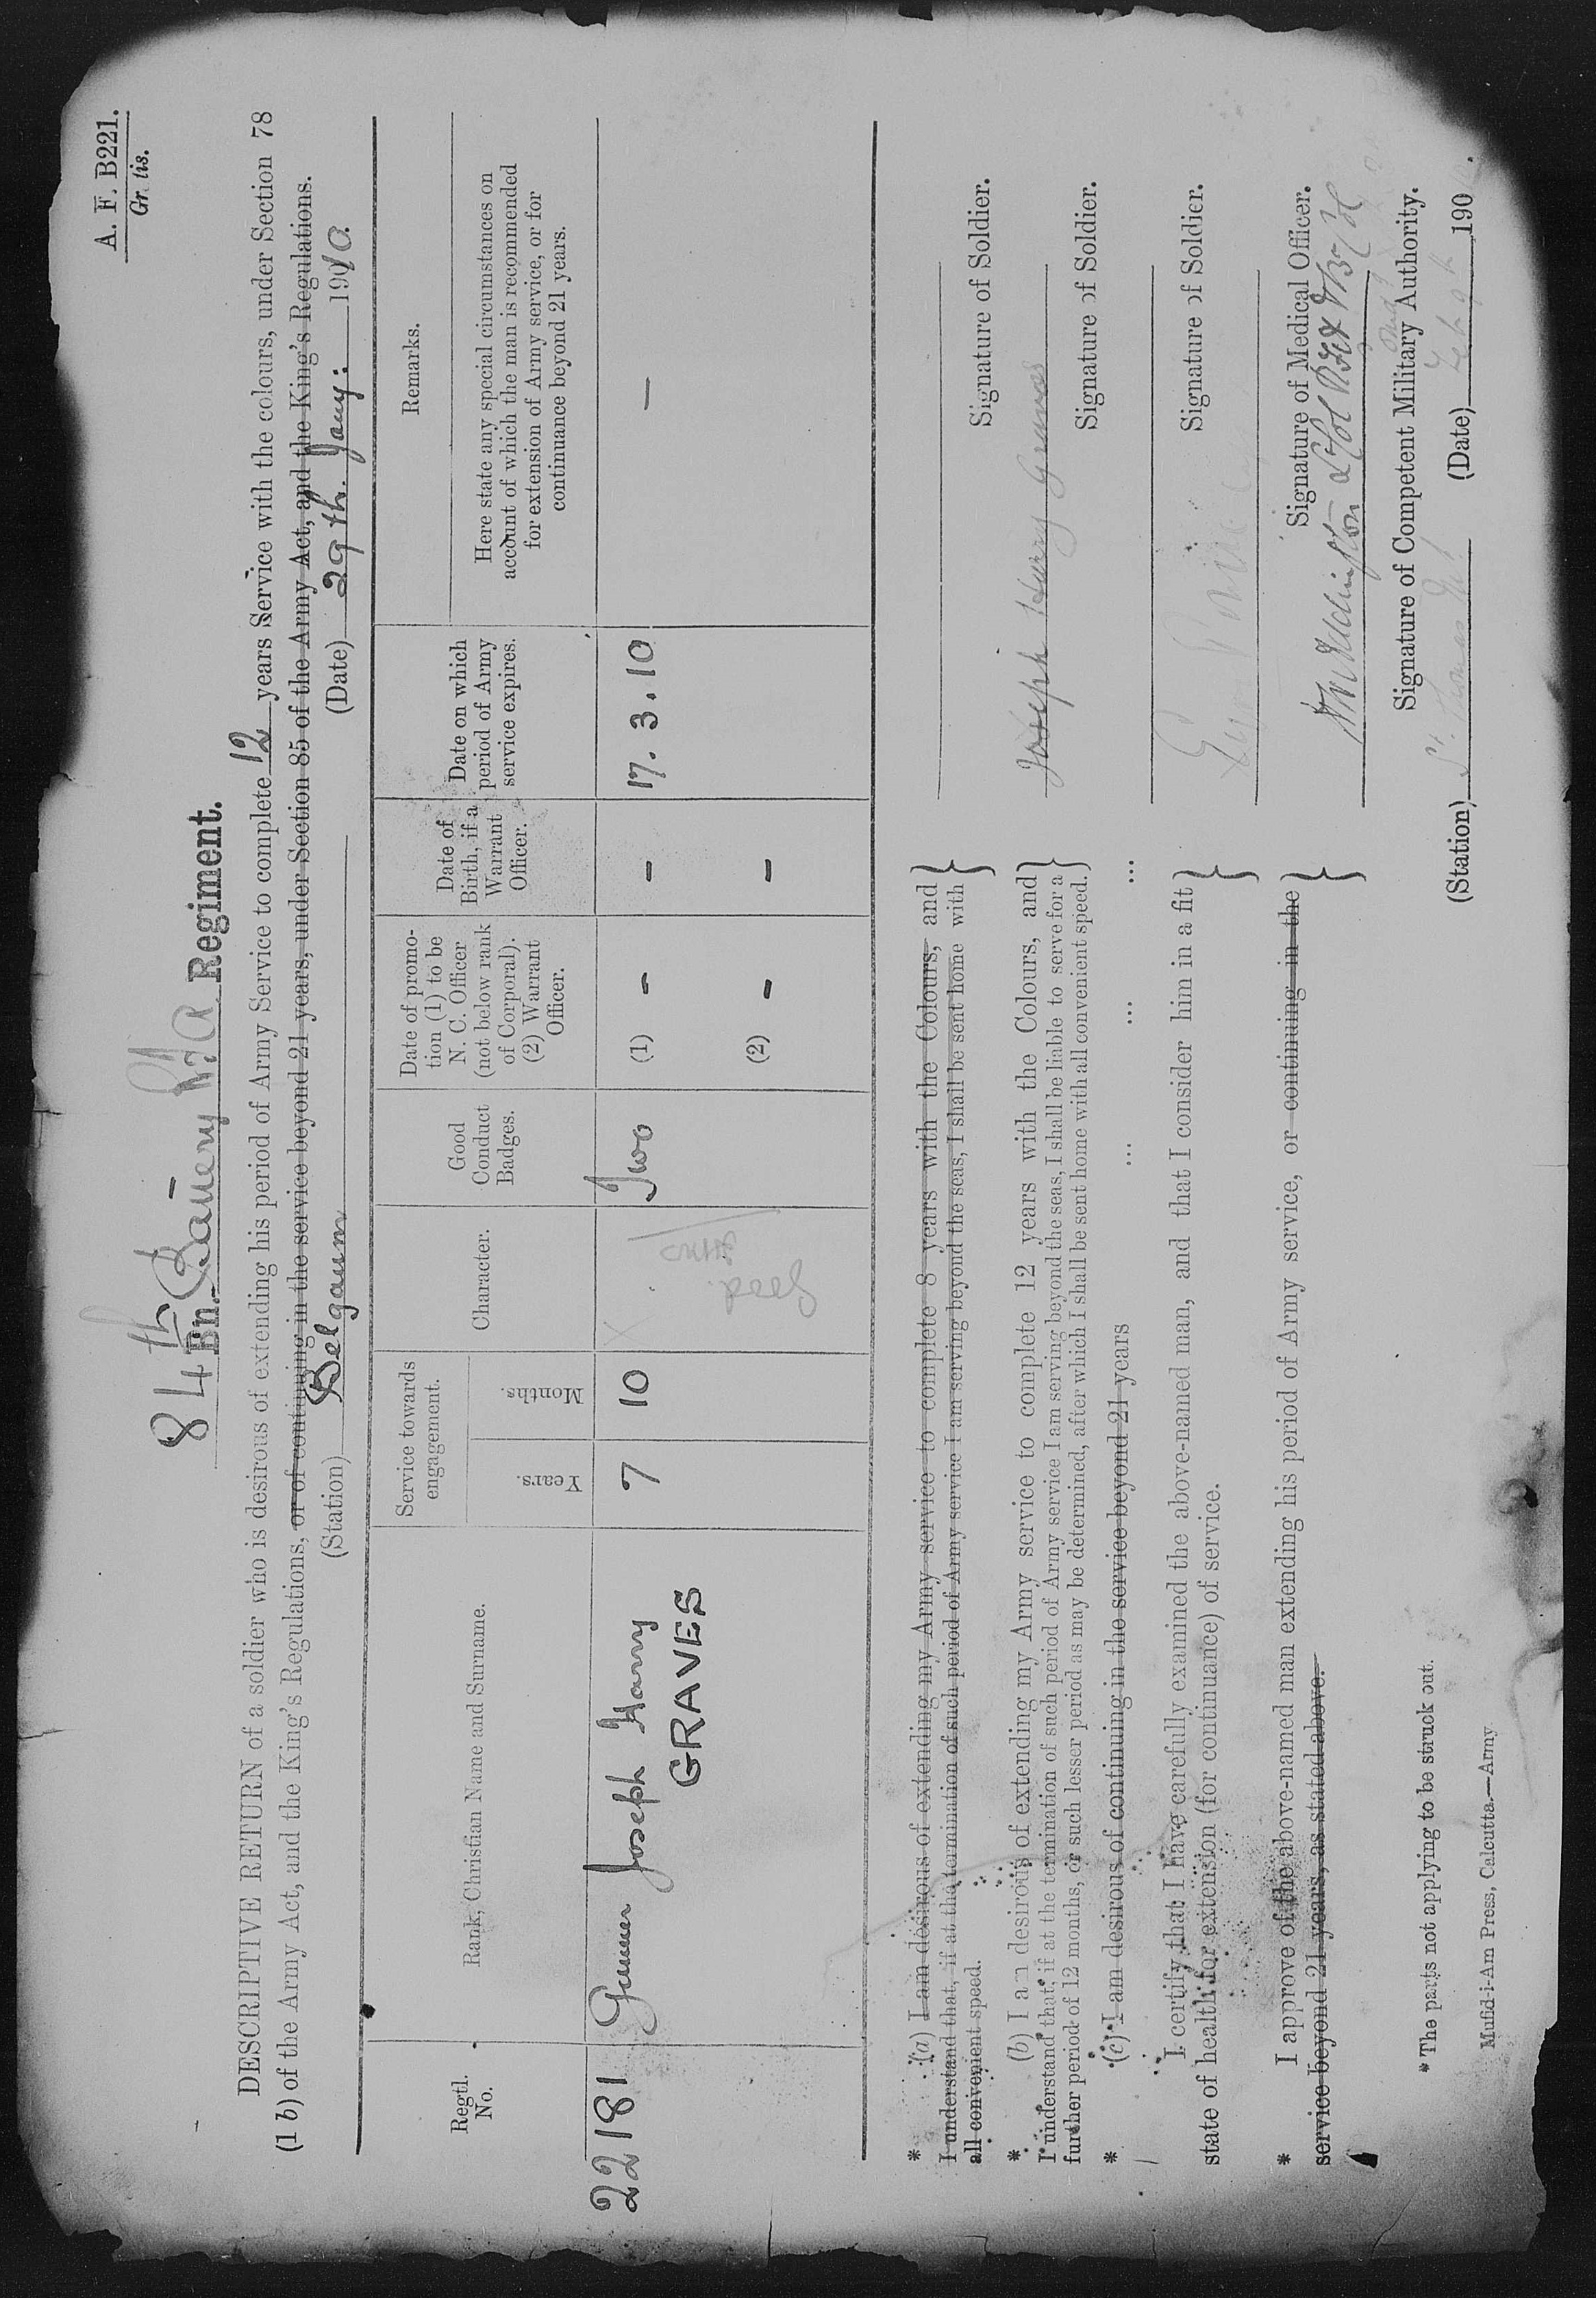 A. F. B221.
Gr. tis.
84th Battery RFA
Bn. Regiment.
DESCRIPTIVE RETURN of a soldier who is desirous of extending his period of Army Service to complete 12 years Service with the colours, under Section 78
(1 b) of the Army Act, and the King's Regulations, or of continuing in the service beyond 21 years, under Section 85 of the Army Act, and the King's Regulations.
(Station) Belgaum (Date) 29th. Jany: 1910.
Regtl. No.
Rank, Christian Name and Surname.
Service towards engagement.
Years.
Months.
Character.
Good Conduct Badges.
Date of promo-
tion (1) to be
N. C. Officer
(not below rank
of Corporal).
(2) Warrant
Officer.
Date of
Birth, if a
Warrant
Officer.
Date on which
period of Army
service expires.
Remarks.
Here state any special circumstances on
account of which the man is recommended
for extension of Army service, or for
continuance beyond 21 years.
22181 Gunner Joseph Harry 7 10 Two (1) – – 17.3.10 —
GRAVES
Good.
(2) – –
* (a) I am desirous of extending my Army service to complete 8 years with the Colours, and
I understand that, if at the termination of such period of Army service I am serving beyond the seas, I shall be sent home with
all convenient speed.
Signature of Soldier.
* (b) I am desirous of extending my Army service to complete 12 years with the Colours, and
I understand that, if at the termination of such period of Army service I am serving beyond the seas, I shall be liable to serve for a
further period of 12 months, or such lesser period as may be determined, after which I shall be sent home with all convenient speed.
Joseph Harry Graves
Signature of Soldier.
* (c) I am desirous of continuing in the service beyond 21 years ... ... ...
Signature of Soldier.
I certify that I have carefully examined the above-named man, and that I consider him in a fit
state of health for extension (for continuance) of service.
Signature of Medical Officer.
* I approve of the above-named man extending his period of Army service, or continuing in the
service beyond 21 years, as stated above.
Signature of Competent Military Authority.
(Station) St. Thomas Mt (Date) 190 .
* The parts not applying to be struck out.
Mufid-i-Am Press, Calcutta.—Army